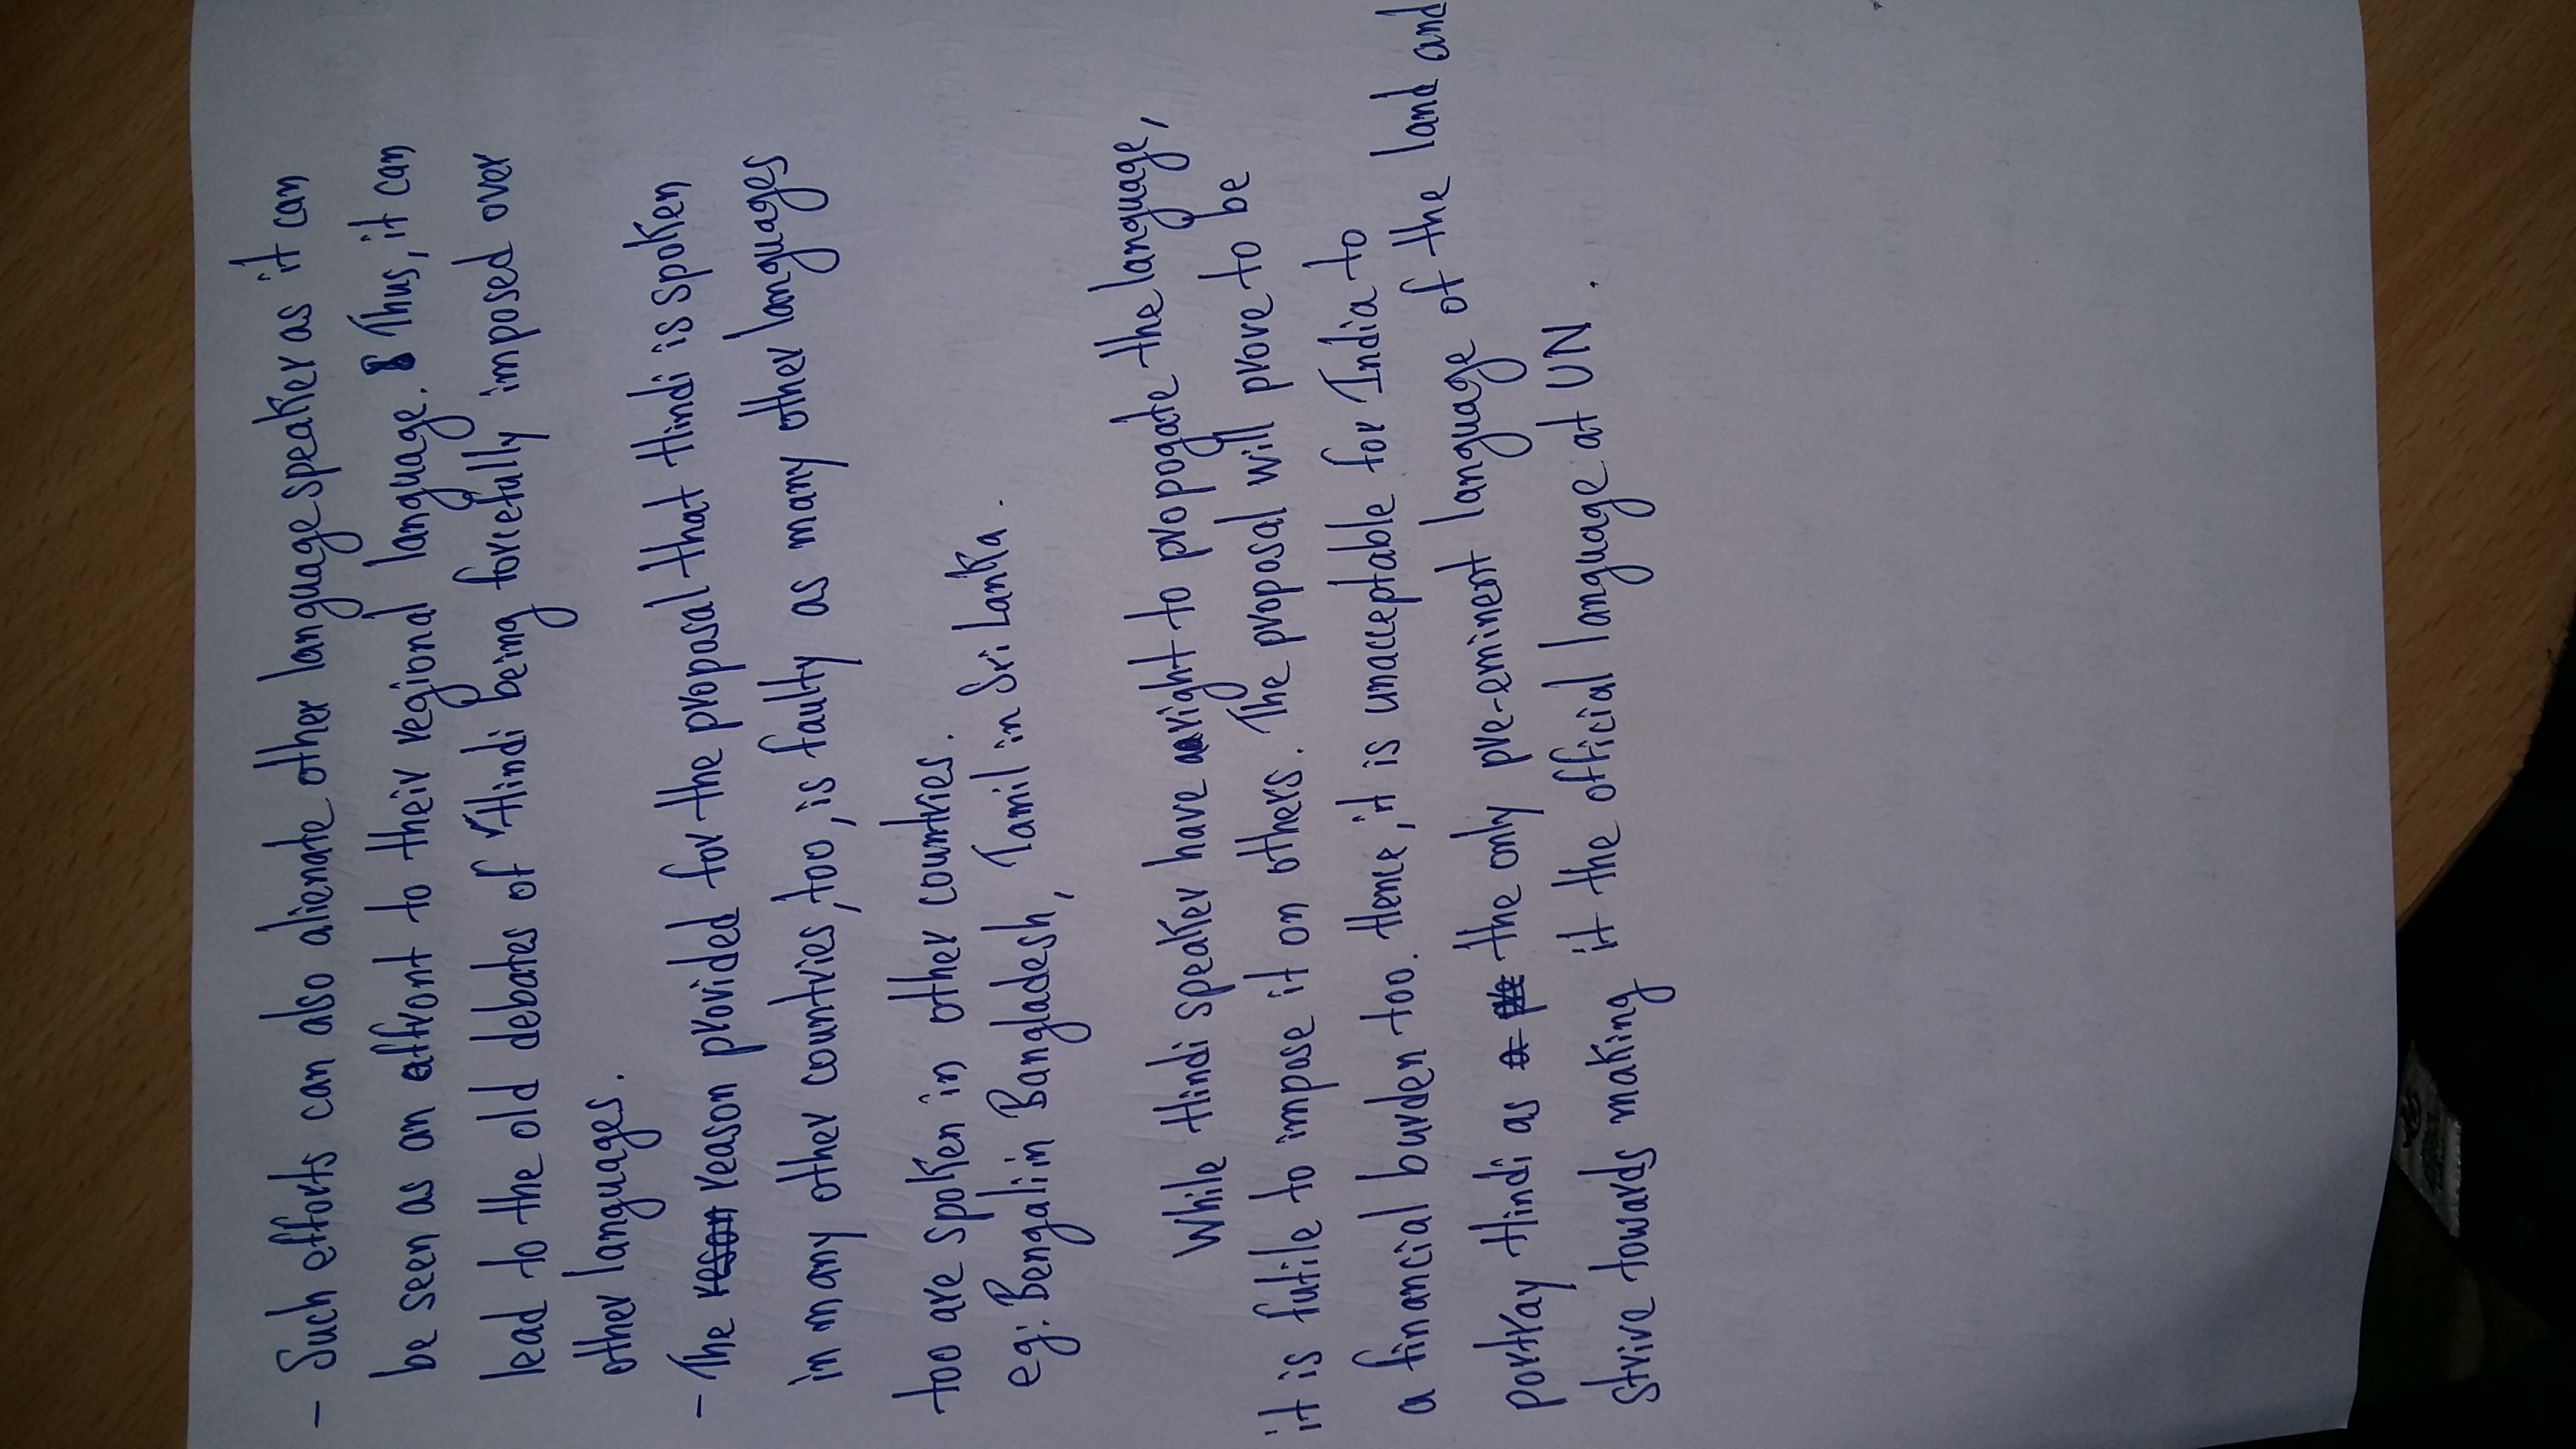 - Such efforts can also alienate other language speaker as it can
be seen as an affront to their regional language. Thus, it can
lead to the old debates of "Hindi being forcefully imposed over
other languages.
- The reason provided for the proposal that Hindi is spoken
in many other countries, too, is faulty as many other languages
too are spoken in other countries.
eg: Bengali in Bangladesh, Tamil in Sri Lanka.
While Hindi speaker have a right to propogate the language,
it is futile to impose it on others. The proposal will prove to be
a financial burden too. Hence, it is unacceptable for India to
portray Hindi as the only pre-eminent language of the land and
strive towards making it the official language at UN.